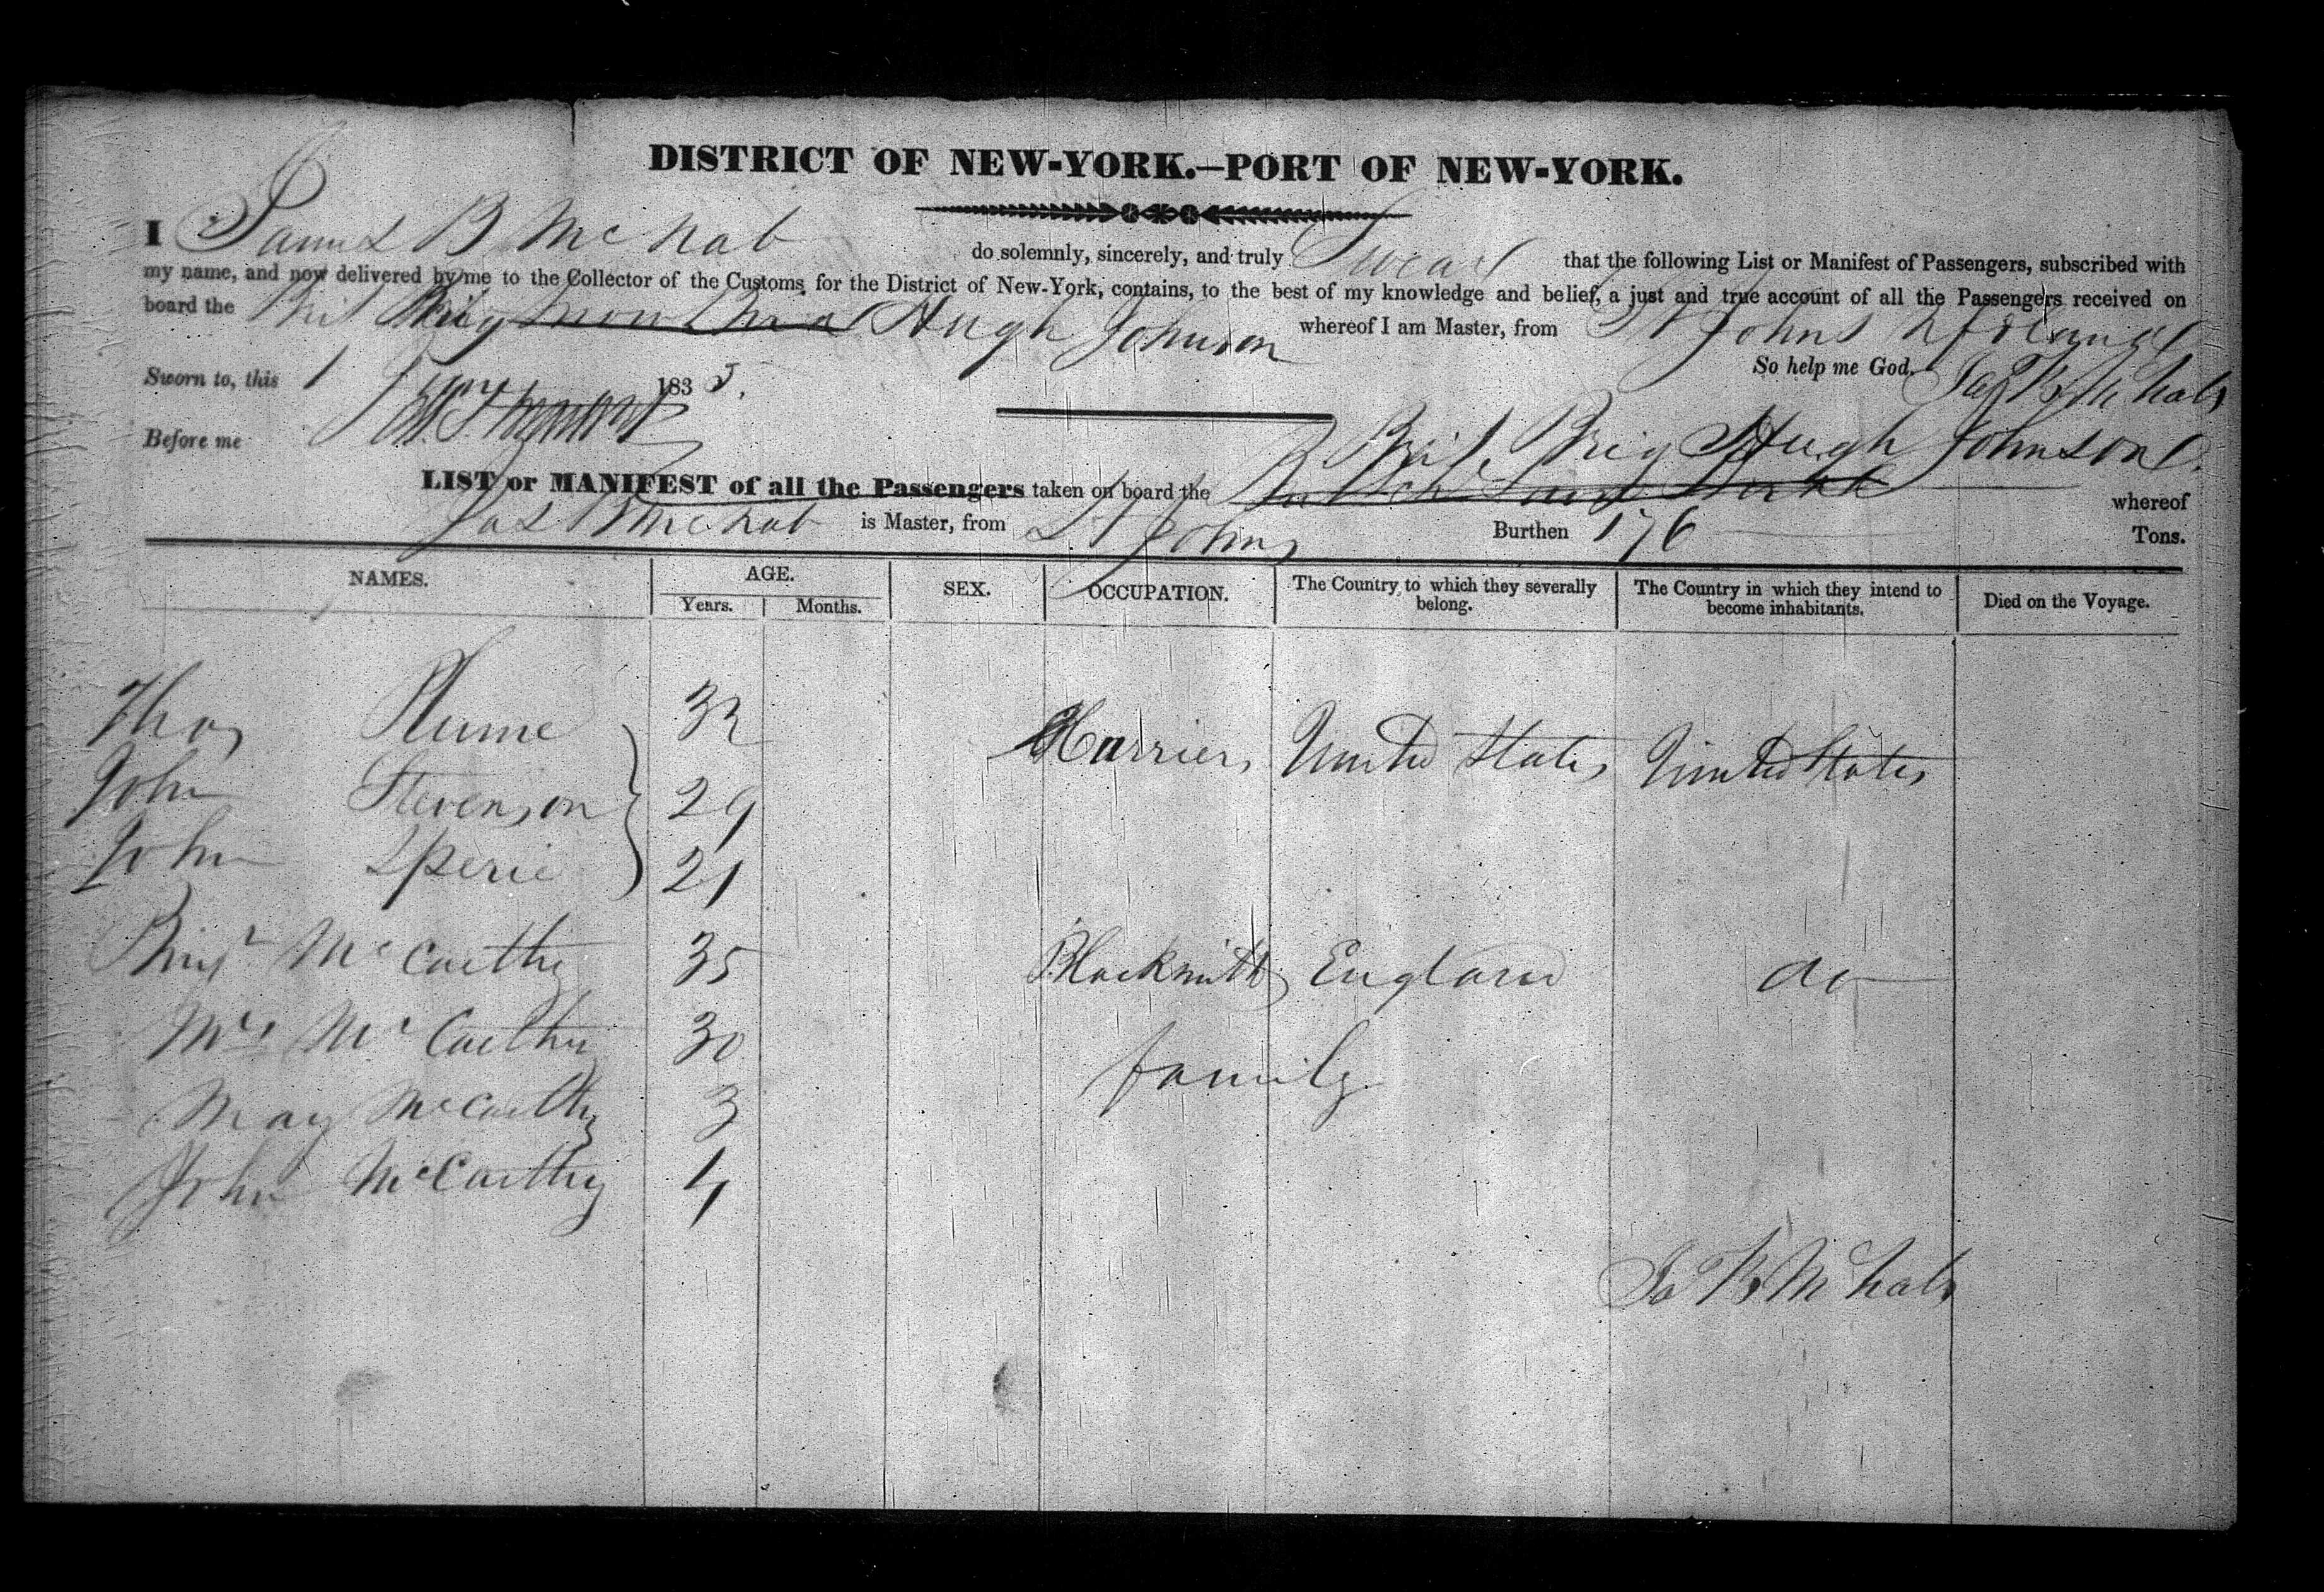 DISTRICT OF NEW-YORK.—PORT OF NEW-YORK.
I James B McNab do solemnly, sincerely, and truly Swear that the following List or Manifest of Passengers, subscribed with
my name, and now delivered by me to the Collector of the Customs for the District of New-York, contains, to the best of my knowledge and belief, a just and true account of all the Passengers received on
board the Brit Brig Hugh Johnson whereof I am Master, from St Johns
So help me God. Jas B McNab
Sworn to, this 1 1835.
Before me
Brit. Brig Hugh Johnson
LIST or MANIFEST of all the Passengers taken on board the whereof
Jas B McNab is Master, from St Johns Burthen 176 Tons.
NAMES. AGE. SEX. OCCUPATION. The Country to which they severally belong. The Country in which they intend to become inhabitants. Died on the Voyage.
Years. Months.
Thos Hume 32 United States United States
John Stevenson 29
John 21
McCarthy 35 Blacksmith England do
Mrs McCarthy 30 family
May McCarthy 3
John McCarthy 4
Jas B McNab